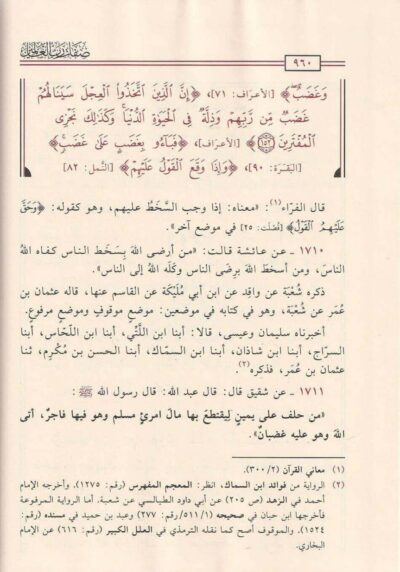 ٩٦٠
صفات رب العالمين
وَغَضَبٌ﴾ [الأعراف: ٧١]، ﴿إِنَّ الَّذِينَ اتَّخَذُوا الْعِجْلَ سَيَنَالُهُمْ
غَضَبٌ مِّن رَّبِّهِمْ وَذِلَّةٌ فِي الْحَيَاةِ الدُّنْيَا وَكَذَٰلِكَ نَجْزِي
الْمُفْتَرِينَ ١٥٢﴾ [الأعراف]، ﴿فَبَاءُو بِغَضَبٍ عَلَىٰ غَضَبٍ﴾
[البقرة: ٩٠]، ﴿وَإِذَا وَقَعَ الْقَوْلُ عَلَيْهِمْ﴾ [النمل: ٨٢]
قال الفرّاء(١): «معناه: إذا وجب السَّخَط عليهم، وهو كقوله: ﴿وَحَقَّ
عَلَيْهِمُ الْقَوْلُ﴾ [فصلت: ٢٥] في موضع آخر».
١٧١٠ ـ عن عائشة قالت: «من أرضى اللهَ بِسَخَط الناس كفاه اللهُ
الناسَ، ومن أسخَط اللهَ برِضى الناس وكَلَه اللهُ إلى الناس».
ذكره شُعْبَة عن واقِد عن ابن أبي مُلَيْكَة عن القاسم عنها، قاله عثمان بن
عُمَر عن شُعْبَة، وهو في كتابه في موضعين: موضع موقوف وموضع مرفوع.
أخبرناه سليمان وعيسى، قالا: أبنا ابن اللَّتِّي، أبنا ابن اللحّاس، أبنا
السرّاج، أبنا ابن شاذان، أبنا ابن السمّاك، أبنا الحسن بن مُكْرِم، ثنا
عثمان بن عُمَر، فذكره(٢).
١٧١١ ـ عن شقيق قال: قال عبد الله: قال رسول الله ﷺ:
«من حلف على يمينٍ لِيقتطعَ بها مالَ امرئٍ مسلم وهو فيها فاجرٌ، أتى
اللهَ وهو عليه غضبانٌ».
(١) معاني القرآن (٣٠٠/٢).
(٢) الرواية من فوائد ابن السماك، انظر: المعجم المفهرس (رقم: ١٢٧٥). وأخرجه الإمام
أحمد في الزهد (ص ٢٠٥) عن أبي داود الطيالسي عن شعبة. أما الرواية المرفوعة
فأخرجها ابن حبان في صحيحه (٥١١/١/ رقم: ٢٧٧) وعبد بن حميد في مسنده (رقم:
١٥٢٤). والموقوف أصح كما نقله الترمذي في العلل الكبير (رقم: ٦١٦) عن الإمام
البخاري.